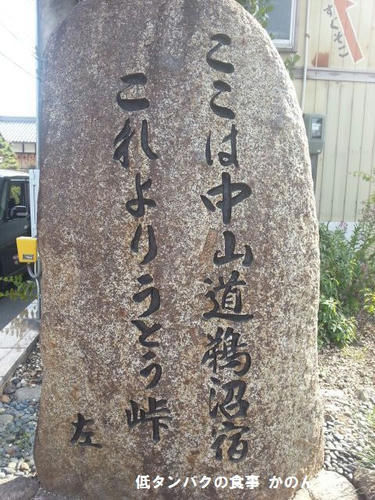 ここは中山道鵜沼宿
これよりうとう峠
左
低タンパクの食事 かのん